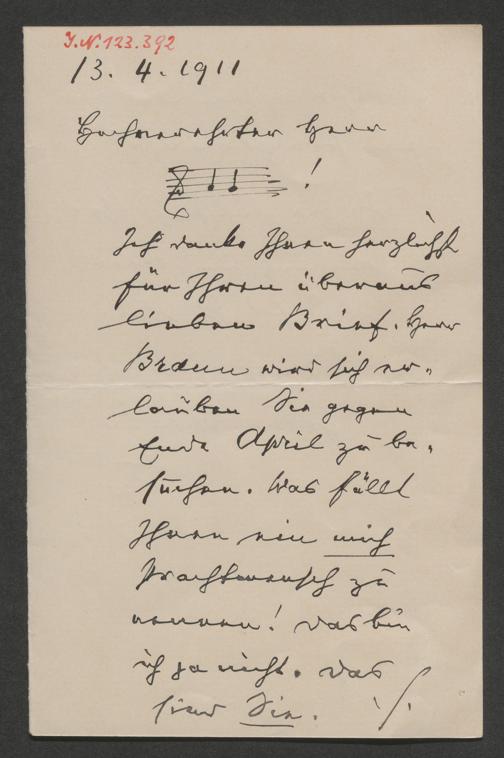 I.N. 123.392
13. 4. 1911
Hochverehrter Herr
!
Ich danke Ihnen herzlichst
für Ihren überaus
lieben Brief. Herr
Braun wird sich er„
lauben Sie gegen
Ende April zu be„
suchen. Was fällt
Ihnen ein mich
Prachtmensch zu
nennen! Das bin
ich ja nicht. Das
sind Sie. ·/.